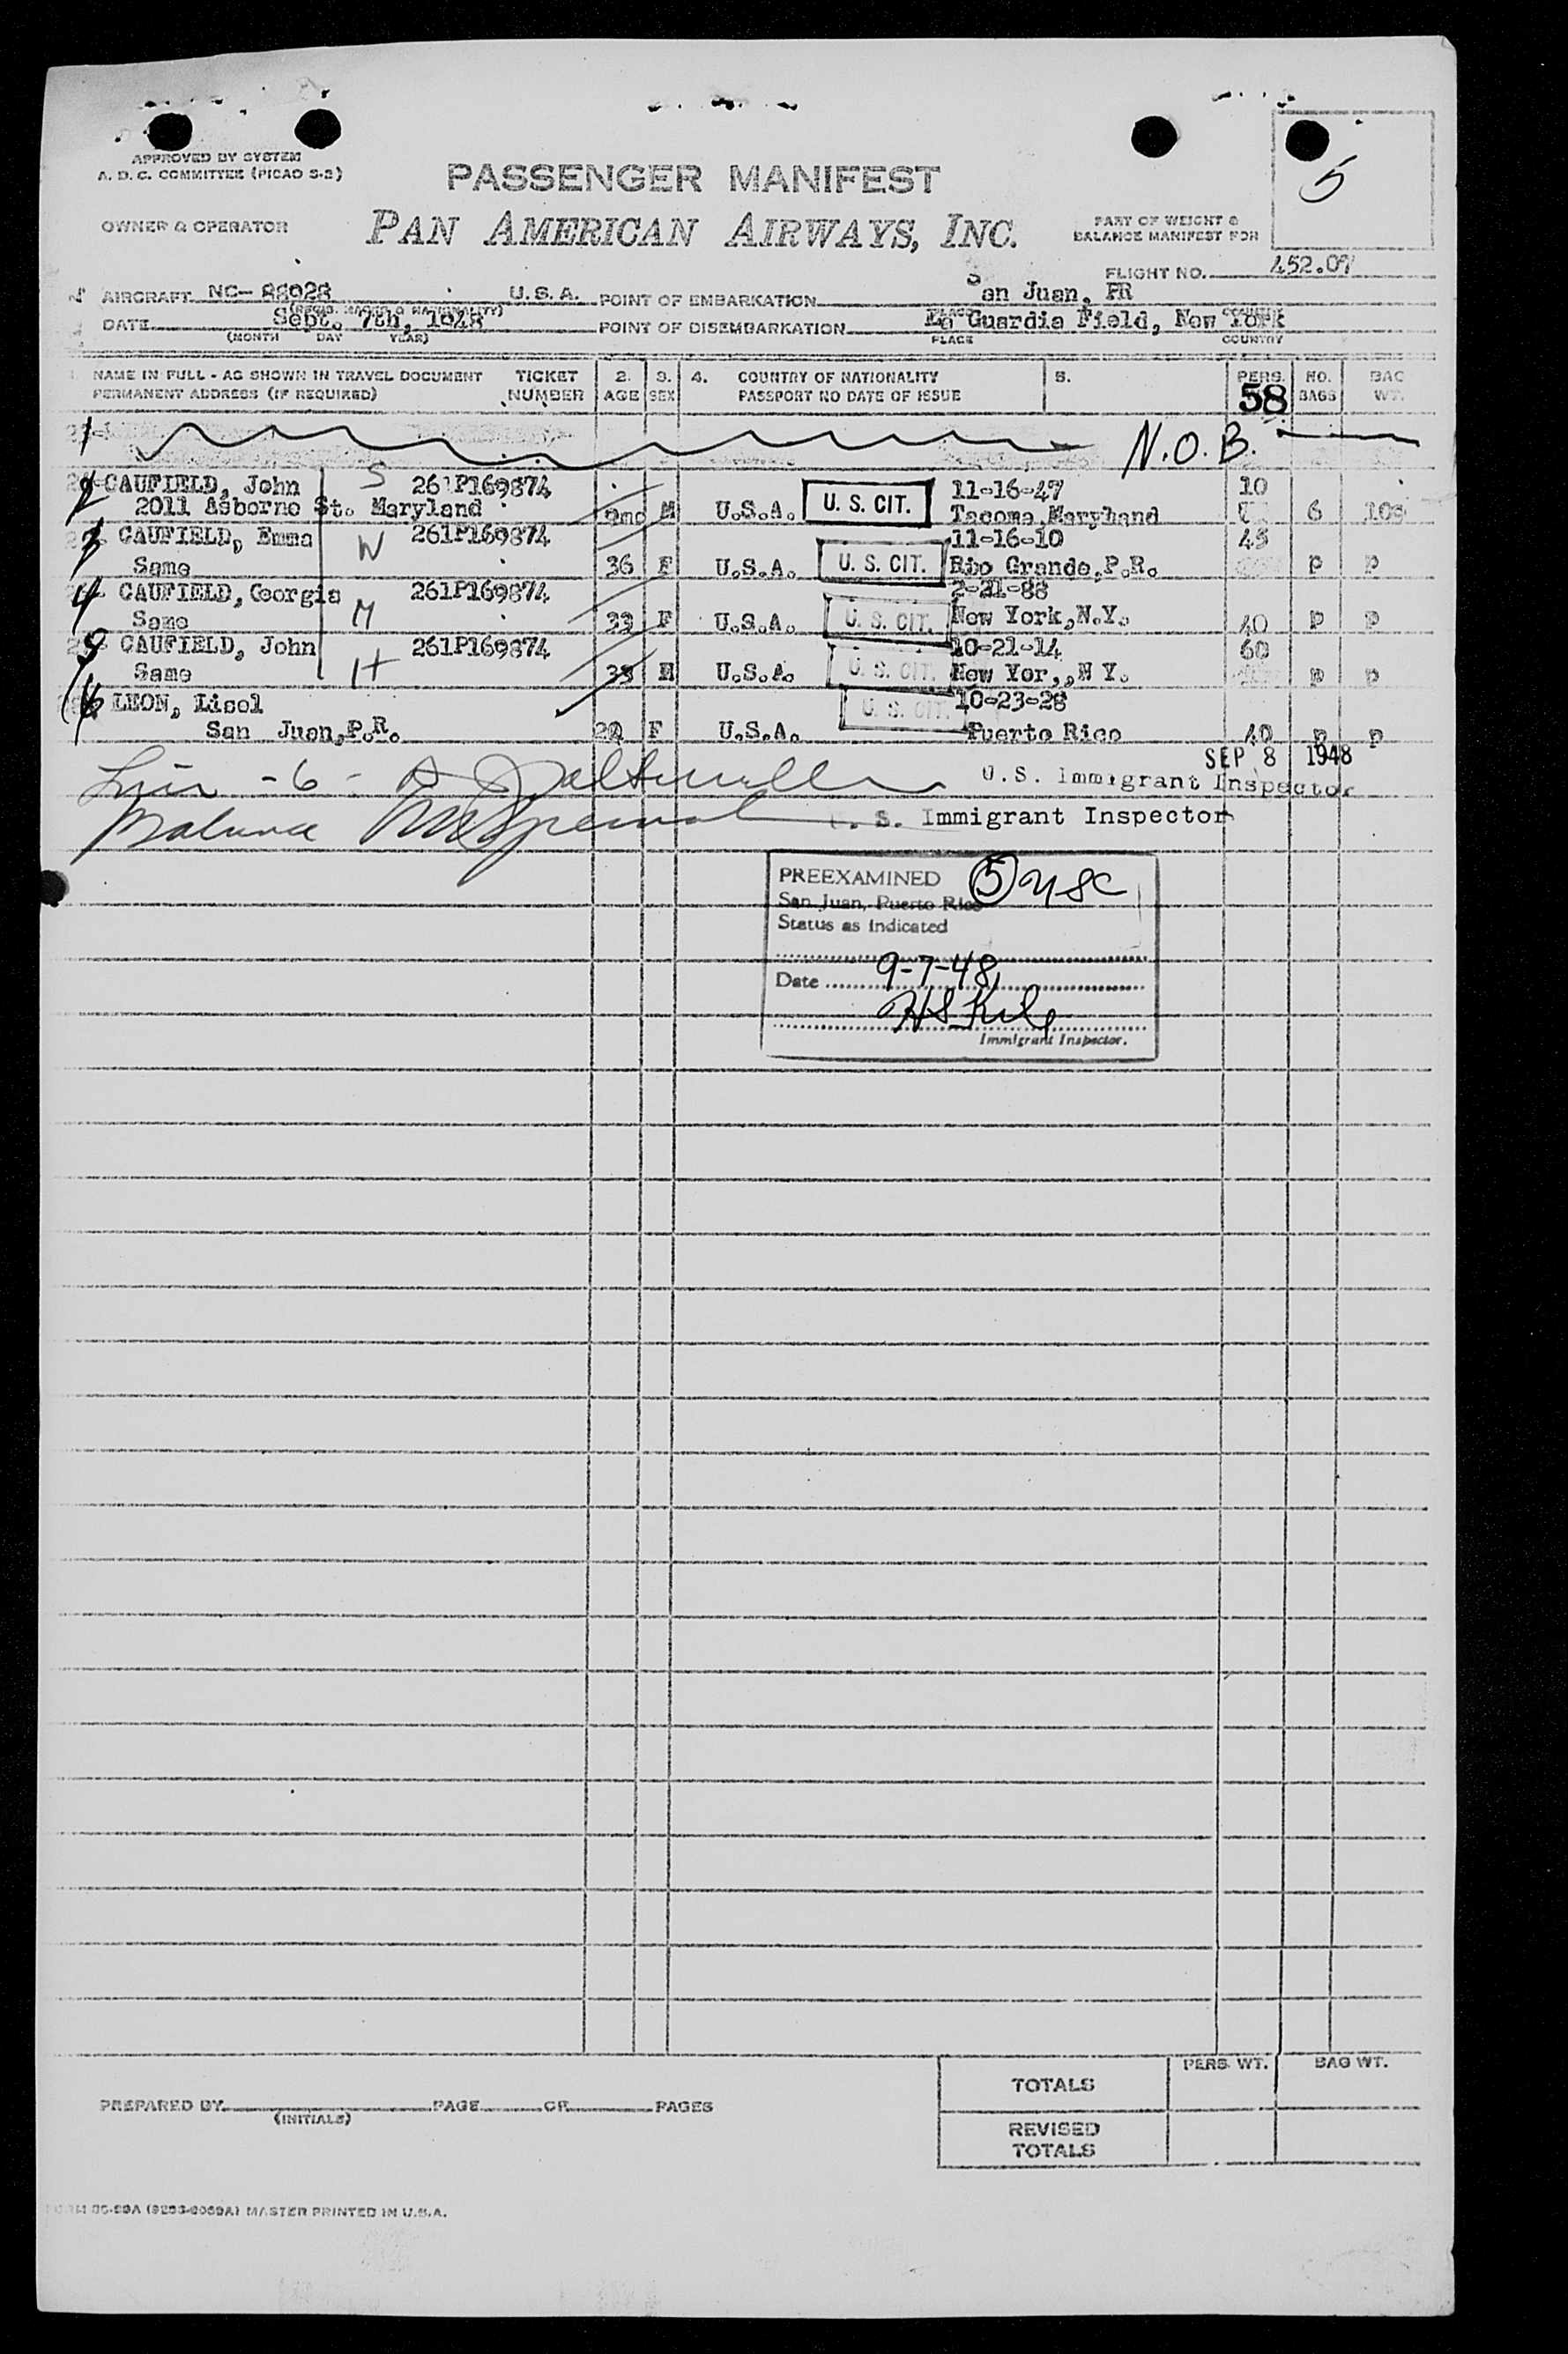 APPROVED BY SYSTEM
A. D. C. COMMITTEE (PICAO S-2)
5
PASSENGER MANIFEST
OWNER & OPERATOR
PAN AMERICAN AIRWAYS, INC.
PART OF WEIGHT &
BALANCE MANIFEST FOR
FLIGHT NO. 452.07
AIRCRAFT NC- 88928 U.S.A. POINT OF EMBARKATION San Juan, PR
DATE Sept. 7th, 1948 POINT OF DISEMBARKATION La Guardia Field, New York
(MONTH DAY YEAR) PLACE COUNTRY
1. NAME IN FULL - AS SHOWN IN TRAVEL DOCUMENT TICKET 2. 3. 4. COUNTRY OF NATIONALITY 5. PERS. NO. BAG
PERMANENT ADDRESS (IF REQUIRED) NUMBER AGE SEX PASSPORT NO DATE OF ISSUE 58 BAGS WT.
1 N.O.B.
2 CAUFIELD, John S 261P169874 11-16-47 10
2011 Asborne St. Maryland 9mo M U.S.A. U. S. CIT. Tacoma, Maryhand 6 108
3 CAUFIELD, Emma W 261P169874 11-16-10 45
Same 36 F U.S.A. U. S. CIT. Rio Grande,P.R. p p
4 CAUFIELD,Georgia M 261P169874 2-21-88
Same 33 F U.S.A. U. S. CIT. New York,N.Y. 40 p p
5 CAUFIELD, John H 261P169874 10-21-14 60
Same 33 M U.S.A. U. S. CIT. New Yor,,N Y. p p
6 LEON, Lisel U. S. CIT. 10-23-28
San Juan,P.R. 20 F U.S.A. Puerto Rico 40 p p
SEP 8 1948
- 6 - U.S. Immigrant Inspector
Balance U. S. Immigrant Inspector
PREEXAMINED 5 USC
San Juan, Puerto Rico
Status as Indicated
Date 9-7-48
Immigrant Inspector.
PERS. WT. BAG WT.
TOTALS
PREPARED BY PAGE OF PAGES
(INITIALS)
REVISED
TOTALS
MASTER PRINTED IN U.S.A.